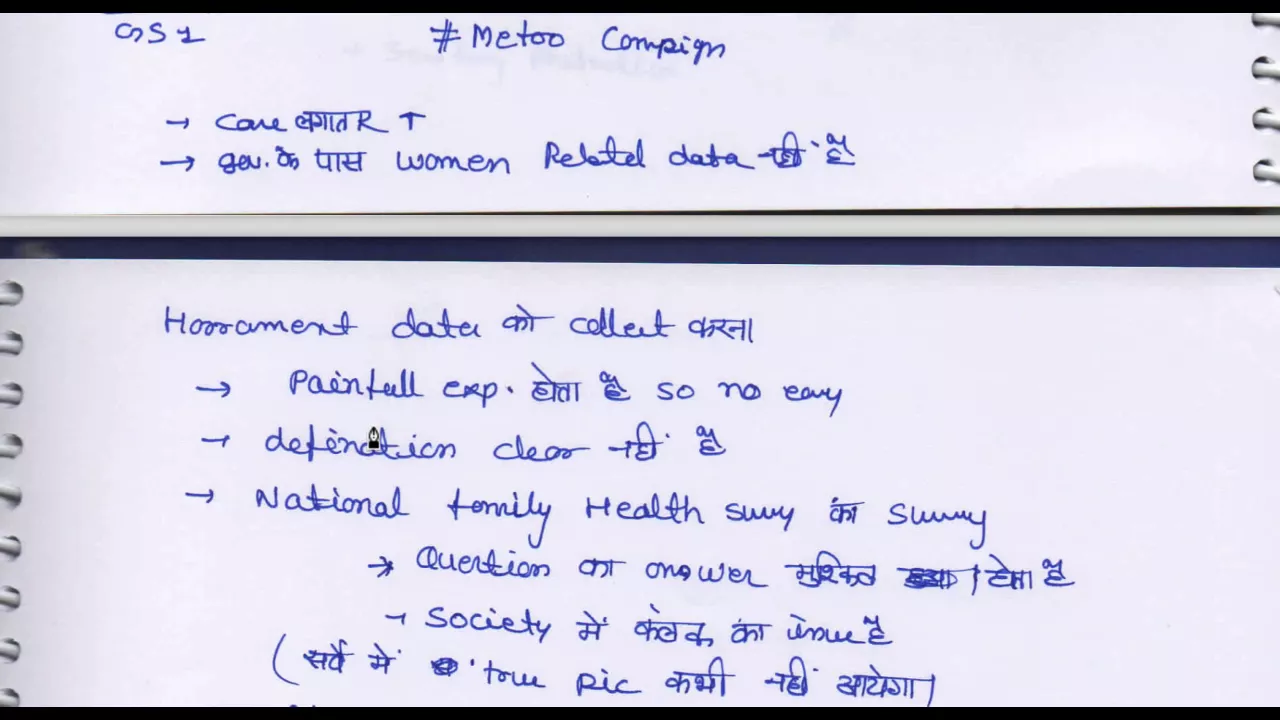 GS 1 # Metoo Compign
→ Case लगातR ↑
→ gov. के पास women Related data नहीं है
Harrament data को collect करना
→ Painfull exp. होता है so no easy
→ defination clear नहीं है
→ National family Health survy का survey
→ Question का answer मुश्किल होता है
→ Society में कलंक का issue है
(सर्वे में true pic कभी नहीं आयेगा।